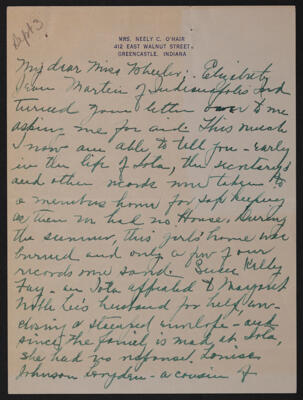 Dept 3
MRS. NEELY C. O'HAIR
412 EAST WALNUT STREET
GREENCASTLE, INDIANA
My dear Miss Wheeler: Elizabeth
Jane Martin of Indianapolis had
turned your letter over to me
asking me for aid. This much
I now am able to tell you - early
in the life of Iota, the secretary's
and other records were taken to
a members home for safe keeping
as then we had no House. During
the summer, this girls' home was
burned and only a few of our
records were saved. Susan Kelley
Fay - an Iota appealed to Margaret
Noble Lee's husband for help, en-
closing a stamped envelope - and
since the family is mad at Iota,
she had no response. Louise
Johnson - a cousin of